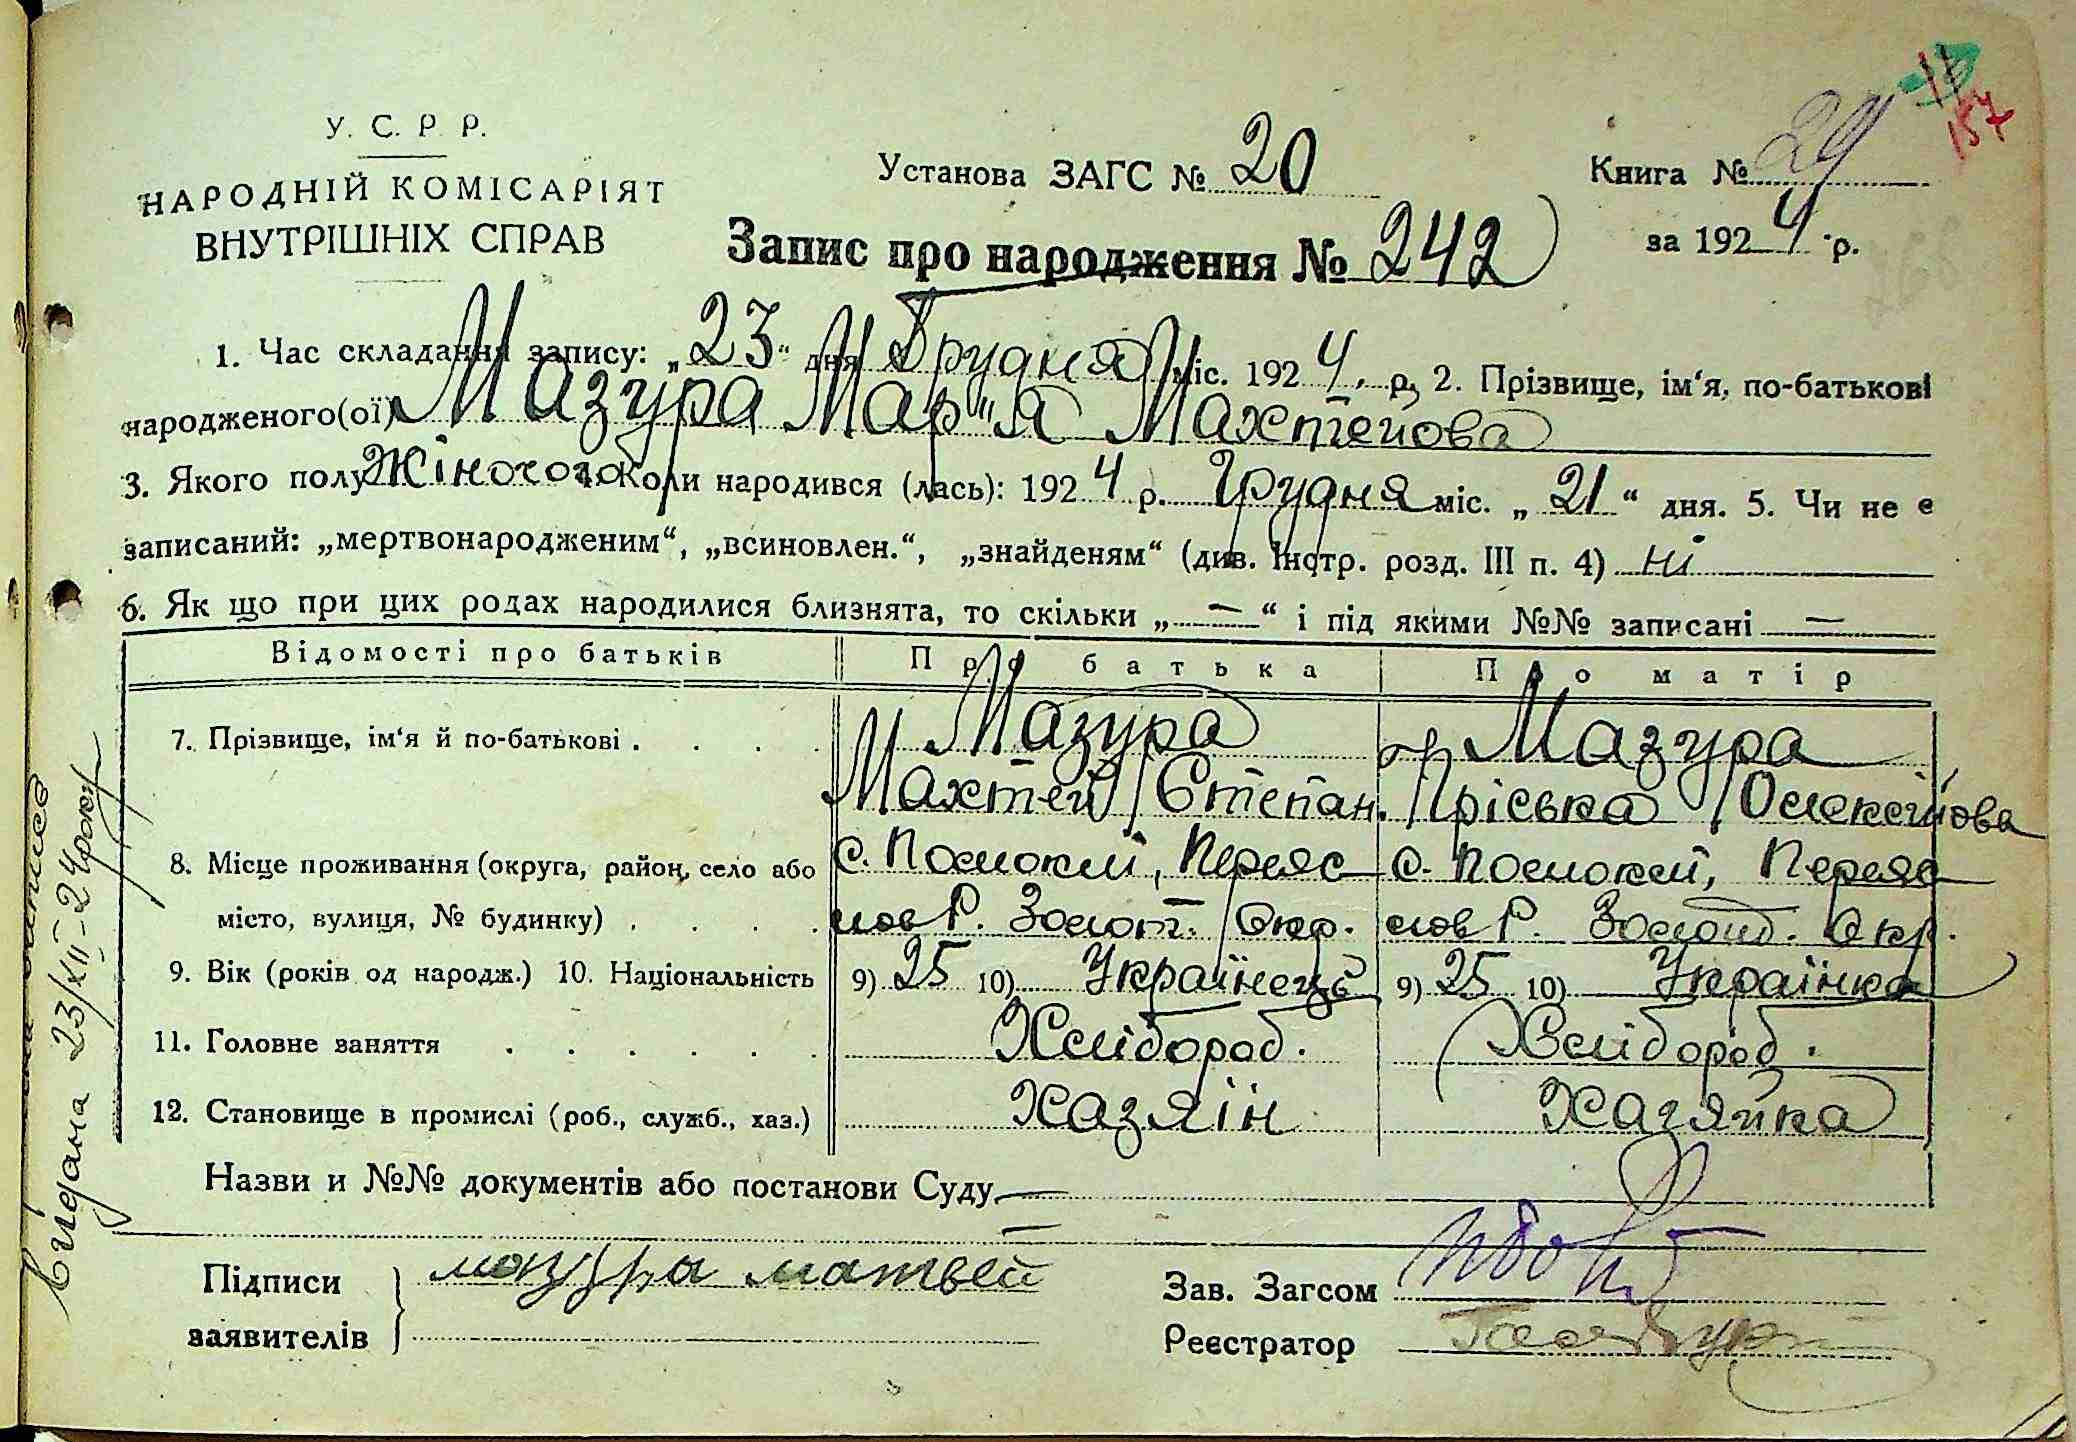 157
У. С. Р. Р.
НАРОДНІЙ КОМІСАРІЯТ
ВНУТРІШНІХ СПРАВ
Установа ЗАГС № 20
Книга № 29
за 1924 р.
Запис про народження № 242
1. Час складання запису: „23“ дня Грудня міс. 1924 р. 2. Прізвище, ім‘я, по-батькові
народженого(ої) Мазура Мар"я Махтейова
3. Якого полу Жіночого 4. Коли народився (лась): 1924 р. Грудня міс. „21“ дня. 5. Чи не є
записаний: „мертвонародженим“, „всиновлен.“, „знайденям“ (див. Інстр. розд. III п. 4) ні
6. Як що при цих родах народилися близнята, то скільки „—“ і під якими №№ записані —
Відомості про батьків Про батька Про матір
7. Прізвище, ім‘я й по-батькові . . . . Мазура Мазура
Махтей Степан. Пріська Олексійова
8. Місце проживання (округа, район, село або с. Помоклі, Переяс с. Помоклі, Переяс
місто, вулиця, № будинку) . . . . лов Р. Золот. Окр. лов Р. Золот. Окр.
9. Вік (років од народж.) 10. Національність 9) 25 10) Українець 9) 25 10) Українка
11. Головне заняття . . . . . . Хлібороб. Хлібороб.
12. Становище в промислі (роб., служб., хаз.) Хазяїн Хазяйка
Назви и №№ документів або постанови Суду —
Підписи
заявителів
мазура матвей
Зав. Загсом
Реєстратор
видана виписъ
23/XII-24 року